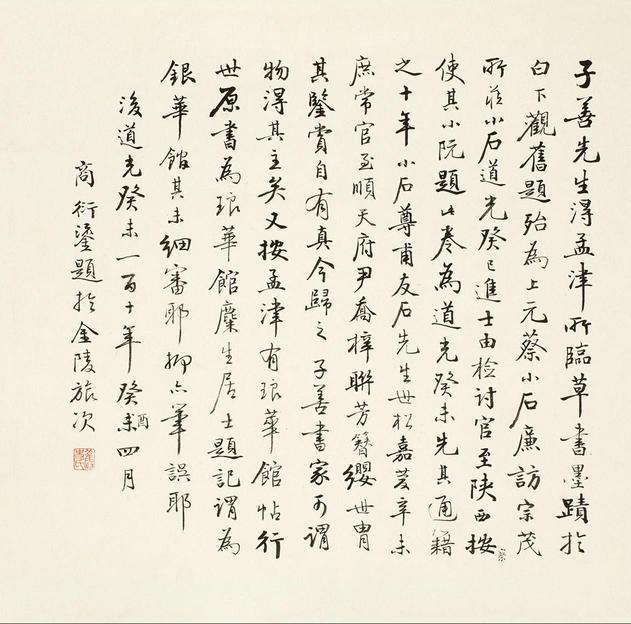 子善先生得孟津所臨草書墨蹟於
白下觀舊題殆為上元蔡小石廉訪宗茂
所藏小石道光癸巳進士由檢討官至陝西按察
使其小阮題此卷為道光癸未先其通籍
之十年小石尊甫友石先生世松嘉慶辛未
庶常官至順天府尹喬梓聯芳簪纓世胄
其鑒賞自有真今歸之子善書家可謂
物得其主矣又按孟津有琅華館帖行
世原書為琅華館麋生居士題記謂為
銀華館其未細審耶抑亦筆誤耶
後道光癸未一百十年癸未酉四月
商衍鎏題於金陵旅次